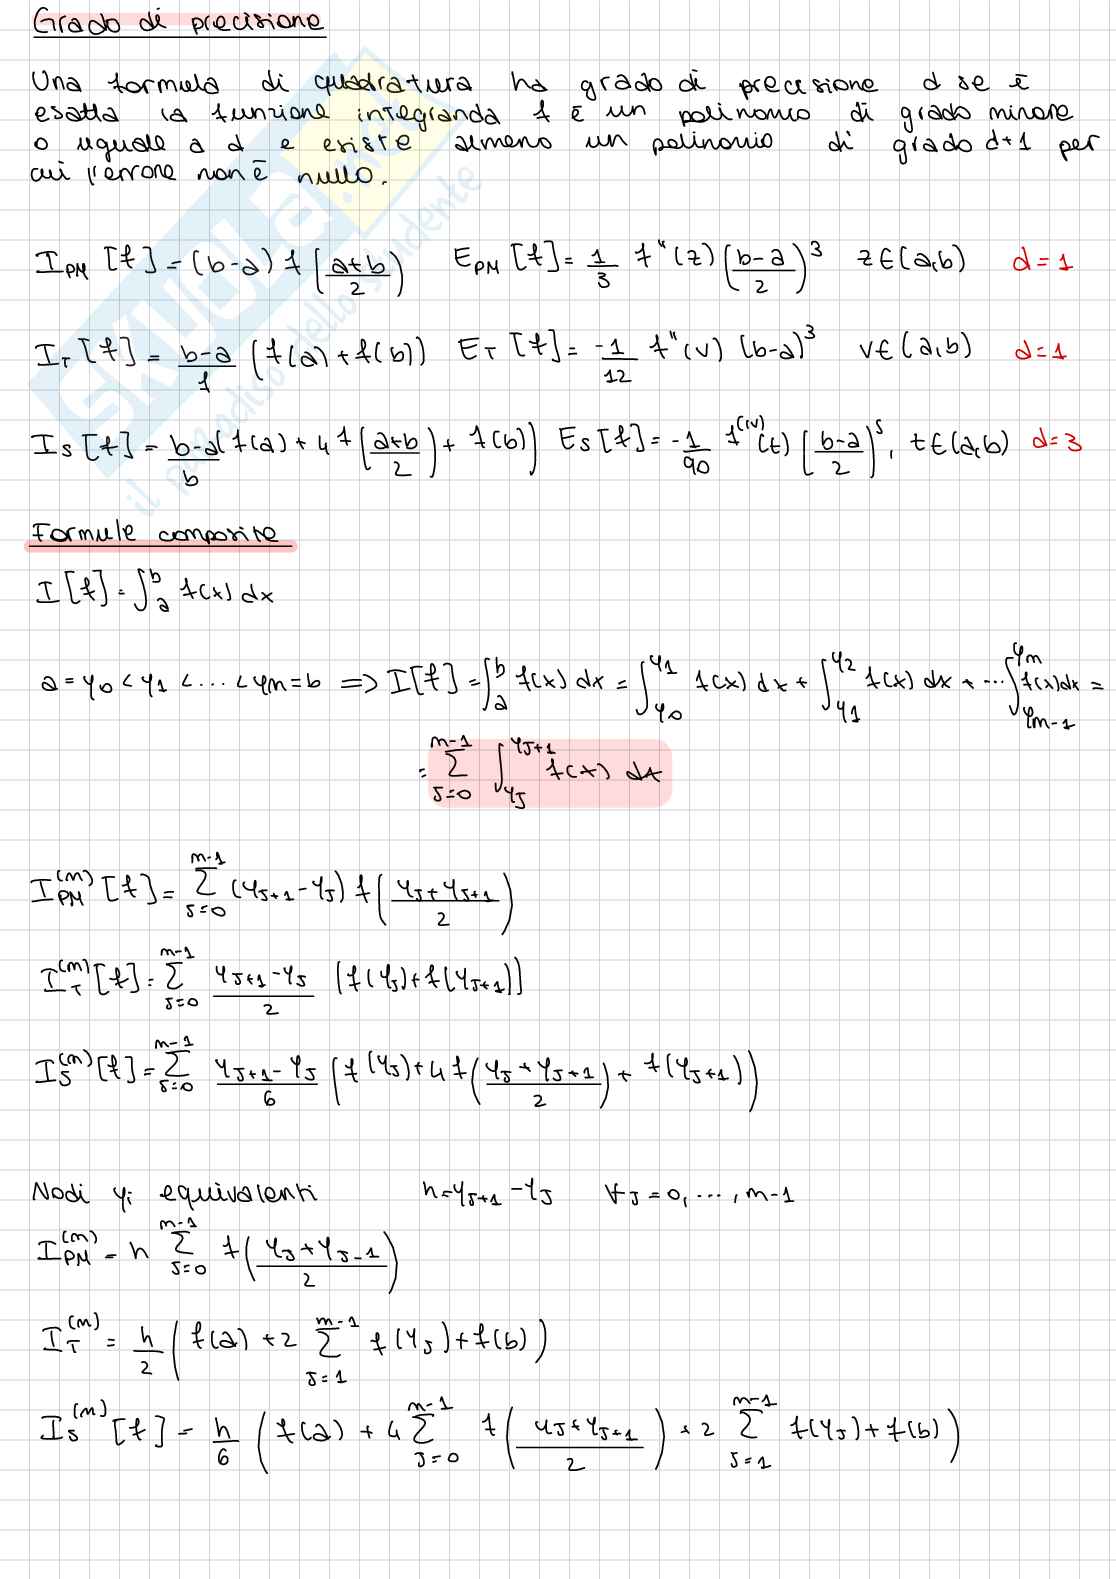 Grado di precisione
Una formula di quadratura ha grado di precisione d se è
esatta la funzione integranda f è un polinomio di grado minore
o uguale a d e esiste almeno un polinomio di grado d+1 per
cui l'errore non è nullo.
I_PM [f] = (b-a) f((a+b)/2) E_PM [f] = 1/3 f''(z) ((b-a)/2)^3 z∈(a,b) d=1
I_T [f] = (b-a)/1 (f(a)+f(b)) E_T [f] = -1/12 f''(v) (b-a)^3 v∈(a,b) d=1
I_S [f] = (b-a)/b (f(a)+4f((a+b)/2)+f(b)) E_S [f] = -1/90 f^(IV)(t) ((b-a)/2)^5, t∈(a,b) d=3
Formule composite
I[f] = ∫_a^b f(x) dx
a=y_0<y_1<...<y_m=b => I[f] = ∫_a^b f(x) dx = ∫_{y_0}^{y_1} f(x) dx + ∫_{y_1}^{y_2} f(x) dx + ... ∫_{y_{m-1}}^{y_m} f(x)dx =
= Σ_{J=0}^{m-1} ∫_{y_J}^{y_{J+1}} f(x) dx
I_PM^(m) [f] = Σ_{J=0}^{m-1} (y_{J+1}-y_J) f((y_J+y_{J+1})/2)
I_T^(m) [f] = Σ_{J=0}^{m-1} (y_{J+1}-y_J)/2 (f(y_J)+f(y_{J+1}))
I_S^(m) [f] = Σ_{J=0}^{m-1} (y_{J+1}-y_J)/6 (f(y_J)+4f((y_J+y_{J+1})/2)+f(y_{J+1}))
Nodi y_i equivalenti h=y_{J+1}-y_J ∀J=0,...,m-1
I_PM^(m) = h Σ_{J=0}^{m-1} f((y_J+y_{J-1})/2)
I_T^(m) = h/2 (f(a)+2 Σ_{J=1}^{m-1} f(y_J)+f(b))
I_S^(m) [f] = h/6 (f(a)+4 Σ_{J=0}^{m-1} f((y_J+y_{J+1})/2)+2 Σ_{J=1}^{m-1} f(y_J)+f(b))
SKUOLA.net
il paradiso dello studente